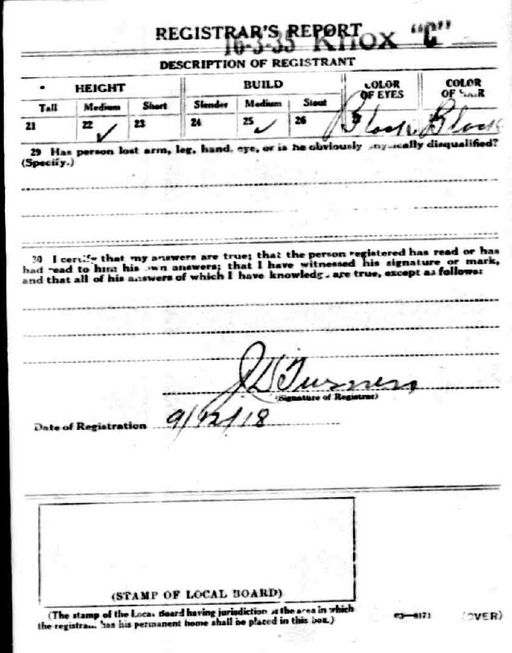 REGISTRAR'S REPORT
16-3-35 Knox "C"
DESCRIPTION OF REGISTRANT
HEIGHT BUILD COLOR OF EYES COLOR OF HAIR
Tall Medium Short Slender Medium Stout
21 22 ✓ 23 24 25 ✓ 26 Black Black
29 Has person lost arm, leg, hand, eye, or is he obviously physically disqualified?
(Specify.)
30 I certify that my answers are true; that the person registered has read or has
had read to him his own answers; that I have witnessed his signature or mark,
and that all of his answers of which I have knowledge are true, except as follows:
J D Turner
(Signature of Registrar)
Date of Registration 9/12/18
(STAMP OF LOCAL BOARD)
(The stamp of the Local Board having jurisdiction of the area in which
the registrant has his permanent home shall be placed in this box.)
03—6171 (OVER)